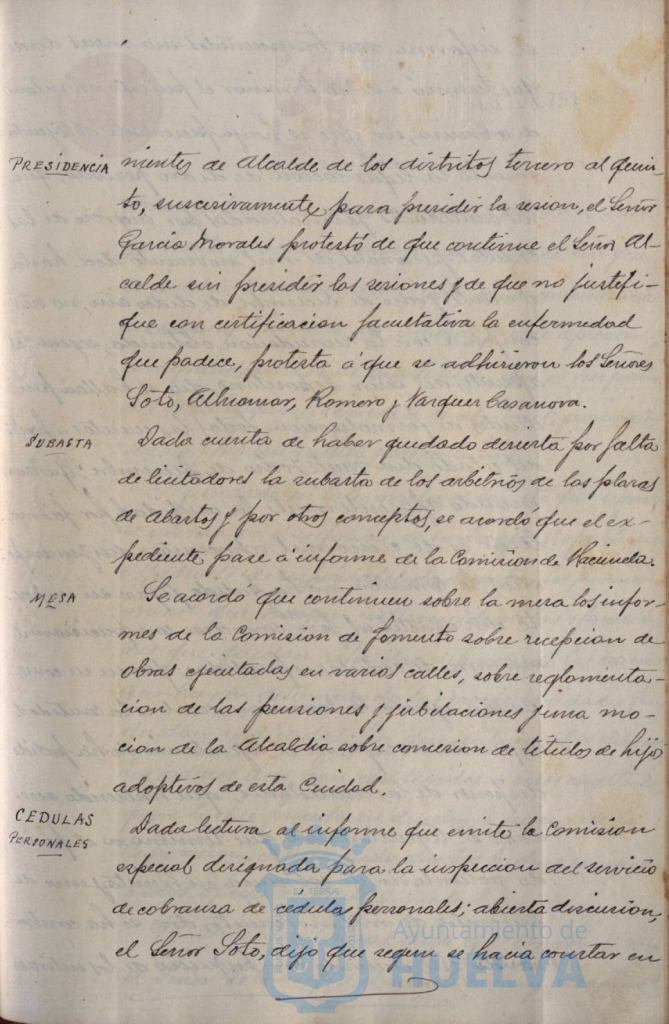 PRESIDENCIA
nientes de Alcalde de los distritos tercero al quin-
to, sucesivamente, para presidir la sesion, el Señor
Garcia Morales protestó de que continue el Señor Al-
calde sin presidir las sesiones y de que no justifi-
que con certificacion facultativa la enfermedad
que padece, protesta á que se adhirieron los Señores
Soto, Albiomar, Romero y Vazquez Casanova.
SUBASTA
Dada cuenta de haber quedado desierta por falta
de licitadores la subasta de los arbitrios de las plazas
de Abastos y por otros conceptos, se acordó que el ex-
pediente pase á informe de la Comision de Hacienda.
MESA
Se acordó que continuen sobre la mesa los infor-
mes de la Comision de fomento sobre recepcion de
obras ejecutadas en varias calles, sobre reglamenta-
cion de las pensiones y jubilaciones y una mo-
cion de la Alcaldia sobre concesion de titulos de hijos
adoptivos de esta Ciudad.
CEDULAS
PERSONALES
Dada lectura al informe que emite la Comision
especial designada para la inspeccion del servicio
de cobranza de cédulas personales; abierta discusion,
el Señor Soto, dijo que segun se hacia constar en
Ayuntamiento de
HUELVA